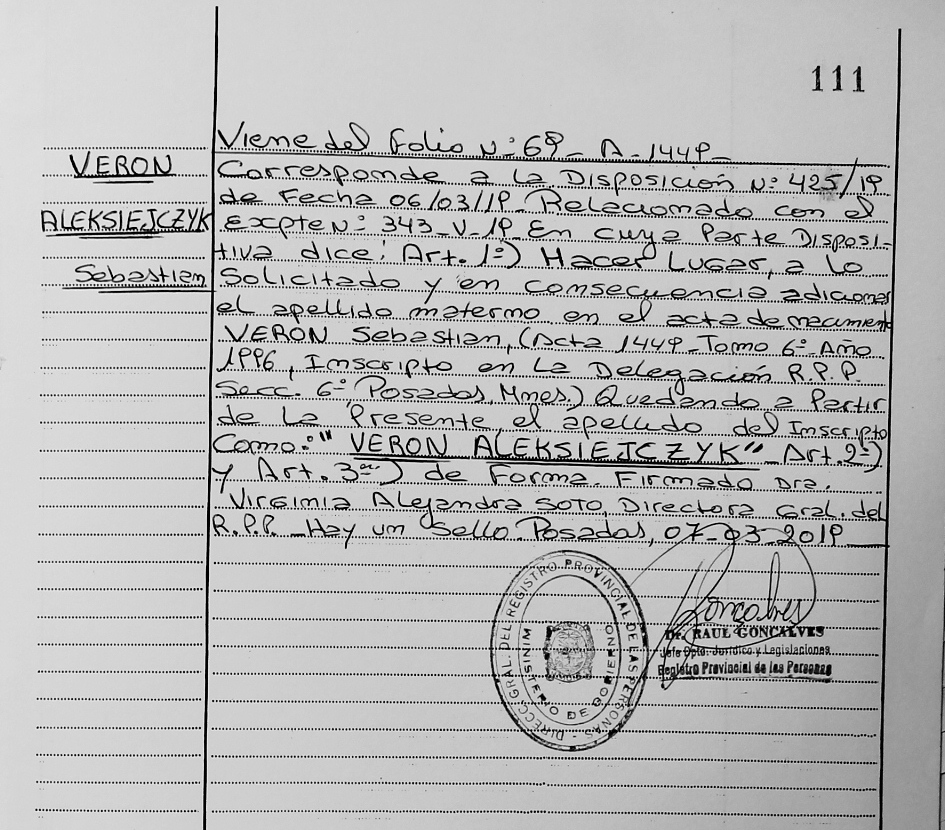 111
Viene del Folio Nº: 69_ A_1449_
VERON
ALEKSIEJCZYK
Sebastian
Corresponde a la Disposición Nº: 425/19
de Fecha 06/03/19_ Relacionado con el
Expte Nº: 343_V_19_ En cuya Parte Disposi-
tiva dice: Art. 1º) Hacer Lugar, a lo
Solicitado y en consecuencia adicionar
el apellido materno en el acta de nacimiento
VERON Sebastian, (Acta 1449_Tomo 6º_Año
1996, Inscripto en La Delegación R.P.P.
Secc. 6º, Posadas, Mnes.) Quedando a Partir
de La Presente, el apellido del Inscripto
Como: "VERON ALEKSIEJCZYK"_ Art. 2º)
y Art. 3º) de Forma. Firmado Dra.
Virginia Alejandra SOTO, Directora Gral. del
R.P.P._ Hay un Sello. Posadas, 07_03_2019_
DIRECC. GRAL. DEL REGISTRO PROVINCIAL DE LAS PERSONAS -
MINISTERIO DE GOBIERNO
Goncalves
Dr. RAUL GONCALVES
Jefe Dpto. Jurídico y Legislaciones
Registro Provincial de las Personas